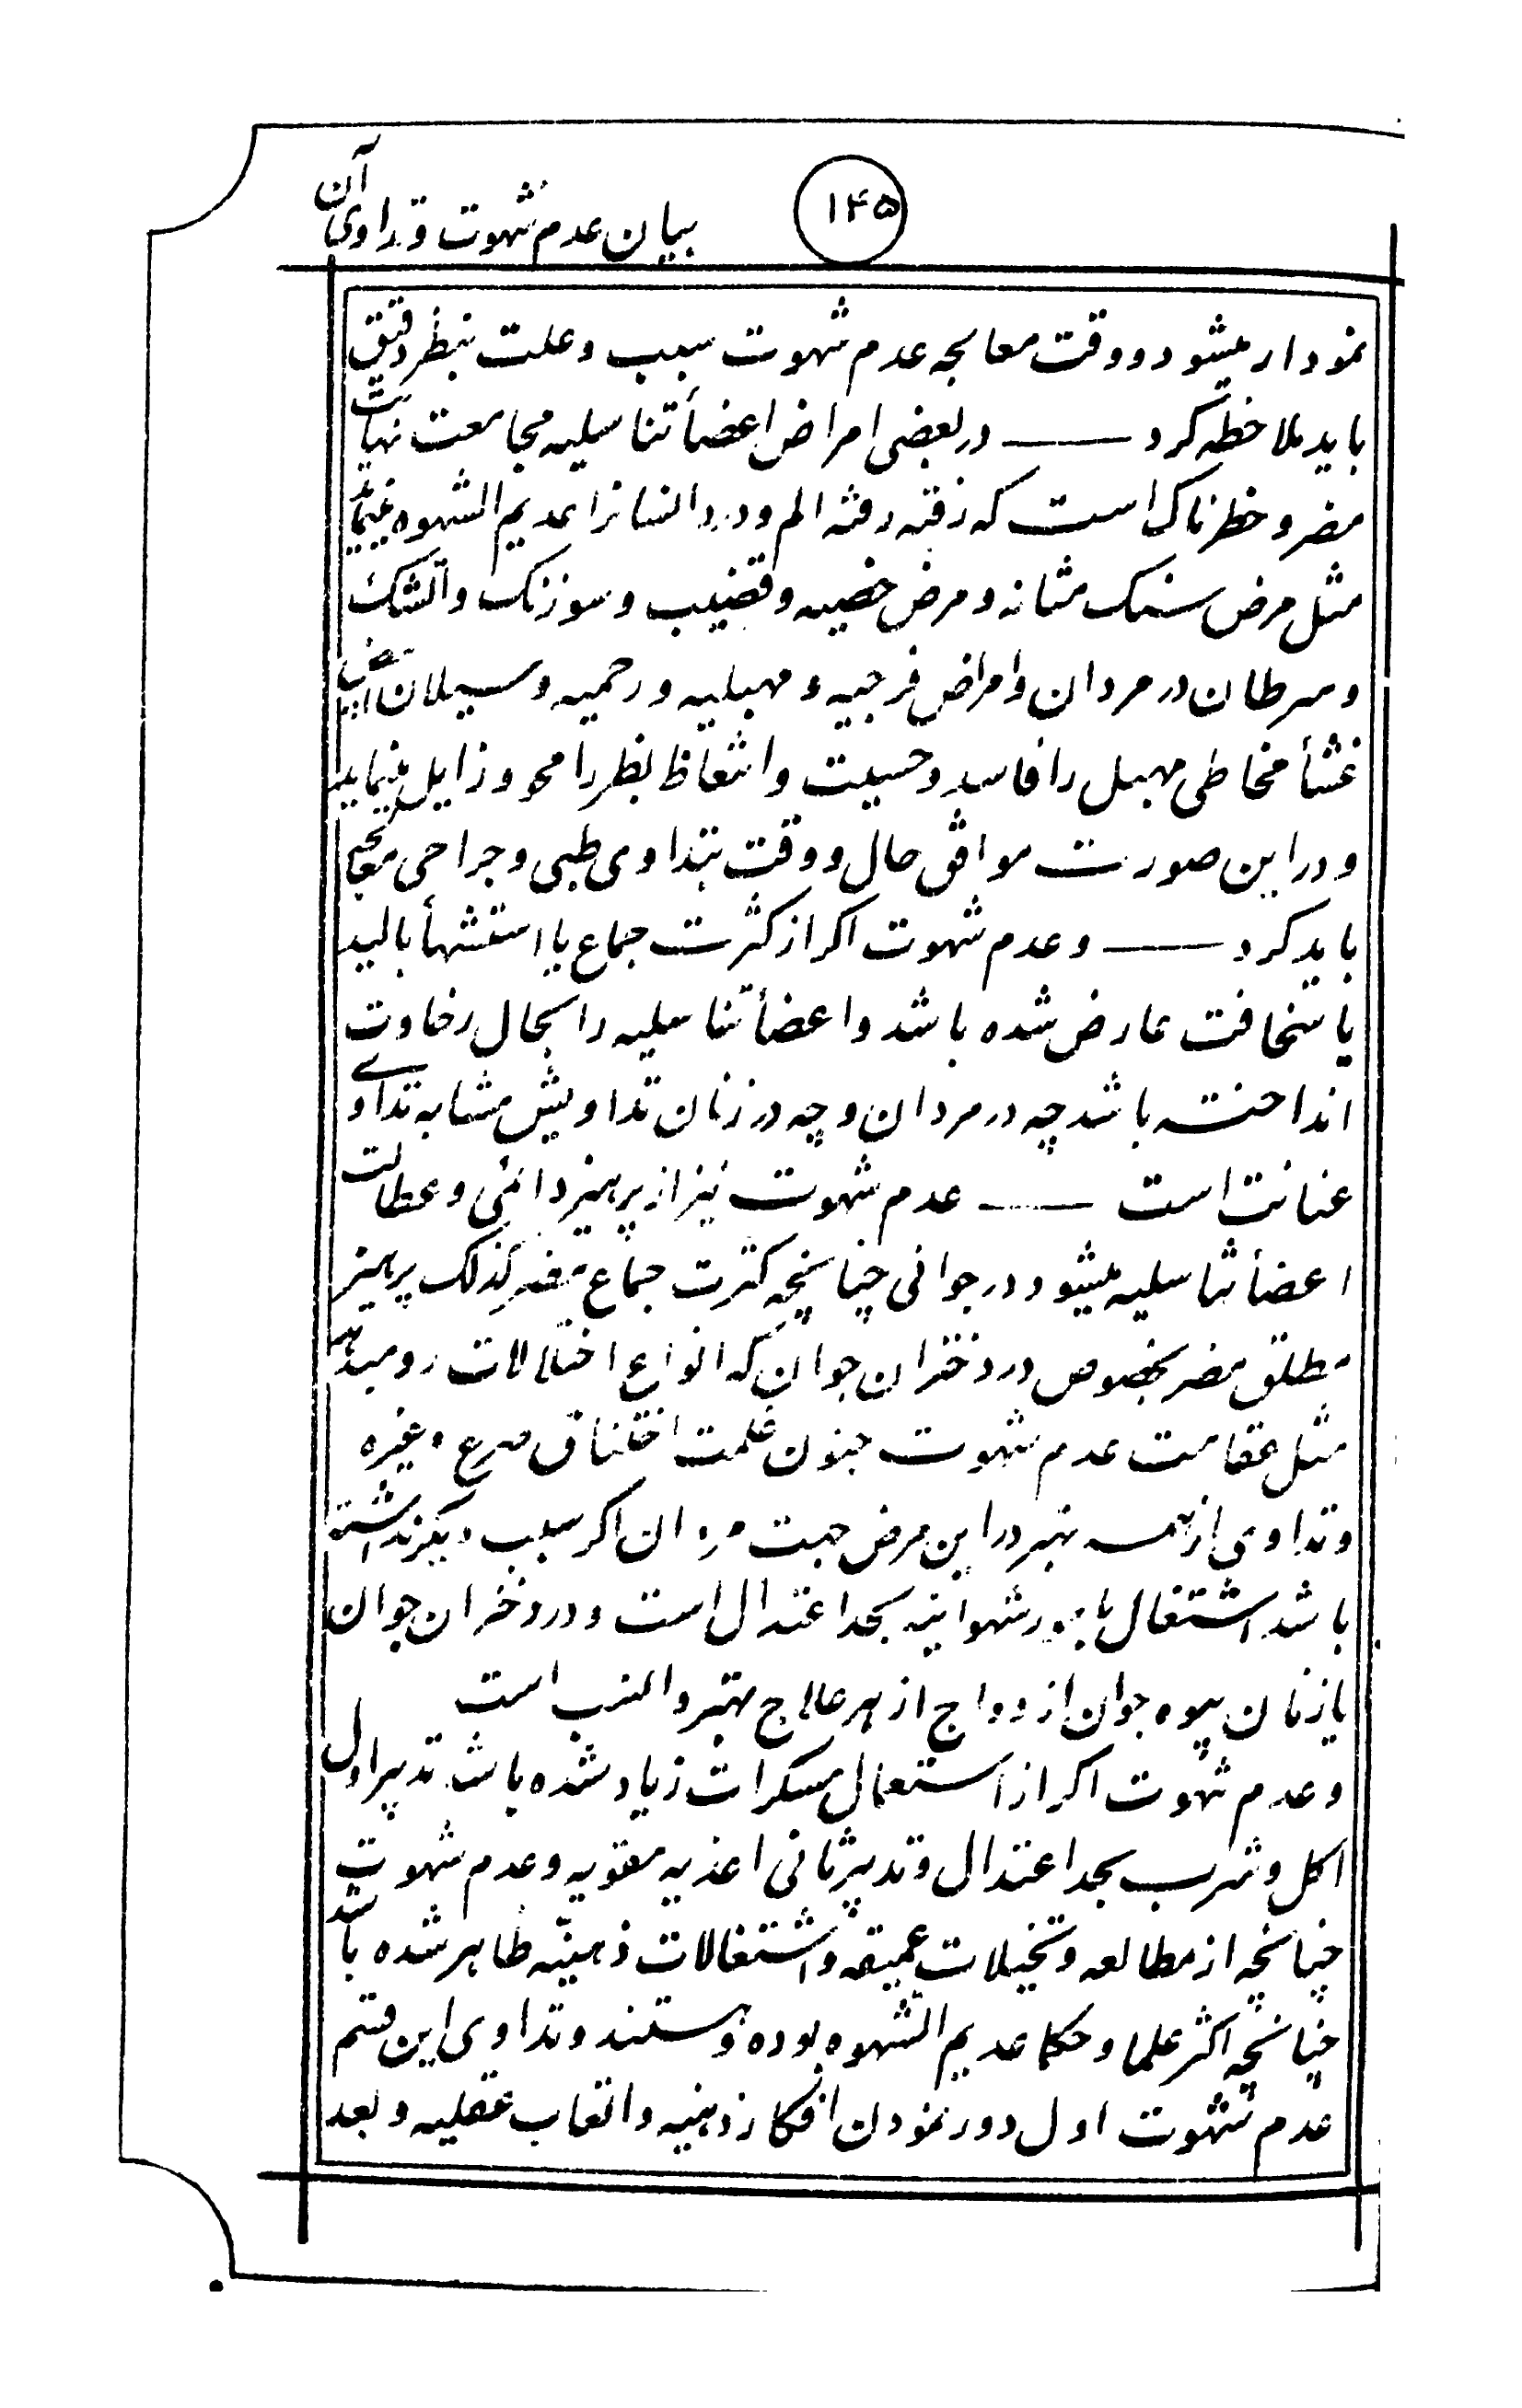 ۱۴۵
بیان عدم شهوت و تداوی آن
نمودار میشود و وقت معالجه عدم شهوت سبب و علت بنظر دقیق
باید ملاحظه کرد —— در بعضی امراض اعضأ تناسلیه مجامعت نهایت
مضر و خطرناک است که رفته رفته الم و درد انسانرا عدیم الشهوه مینماید
مثل مرض سنک مثانه و مرض خصیه و قضیب و سوزنک و آتشک
و سرطان در مردان و امراض فرجیه و مهبلیه و رحمیه و سیلان ابیض
غشأ مخاطی مهبل را فاسد و حسیت و انتعاظ بظر را محو و زایل مینماید
و در این صورت موافق حال و وقت بتداوی طبی و جراحی معالجه
باید کرد —— و عدم شهوت اکر از کثرت جماع یا استشهأ بالید
یا سخافت عارض شده باشد و اعضأ تناسلیه را بحال رخاوت
انداخته باشد چه در مردان و چه در زنان تداویش مشابه تداوی
عنانت است —— عدم شهوت نیز از پرهیز دائمی و عطالت
اعضأ تناسلیه میشود در جوانی چنانچه کثرت جماع مضر کذلک پرهیز
مطلق مضر بخصوص در دختران جوان که انواع اختلالات رو میدهد
مثل عقامت عدم شهوت جنون غلمت اختناق صرع و غیره
و تداوی از همه بهتر در این مرض جهت مردان اکر سبب دیکر نداشته
باشد اشتغال بامور شهوانیه بحد اعتدال است و در دختران جوان
یا زنان بیوه جوان ازدواج از هر علاج بهتر و انسب است
و عدم شهوت اکر از استعمال مسکرات زیاد شده باشد تدبیر اول
اکل و شرب بحد اعتدال و تدبیر ثانی اغذیه مقویه و عدم شهوت
چنانچه از مطالعه و تخیلات عمیقه و اشتغالات ذهنیّه ظاهر شده باشد
چنانچه اکثر علما و حکما عدیم الشهوه بوده و هستند و تداوی این قسم
عدم شهوت اول دور نمودن افکار ذهنیه و اتعاب عقلیه و بعد